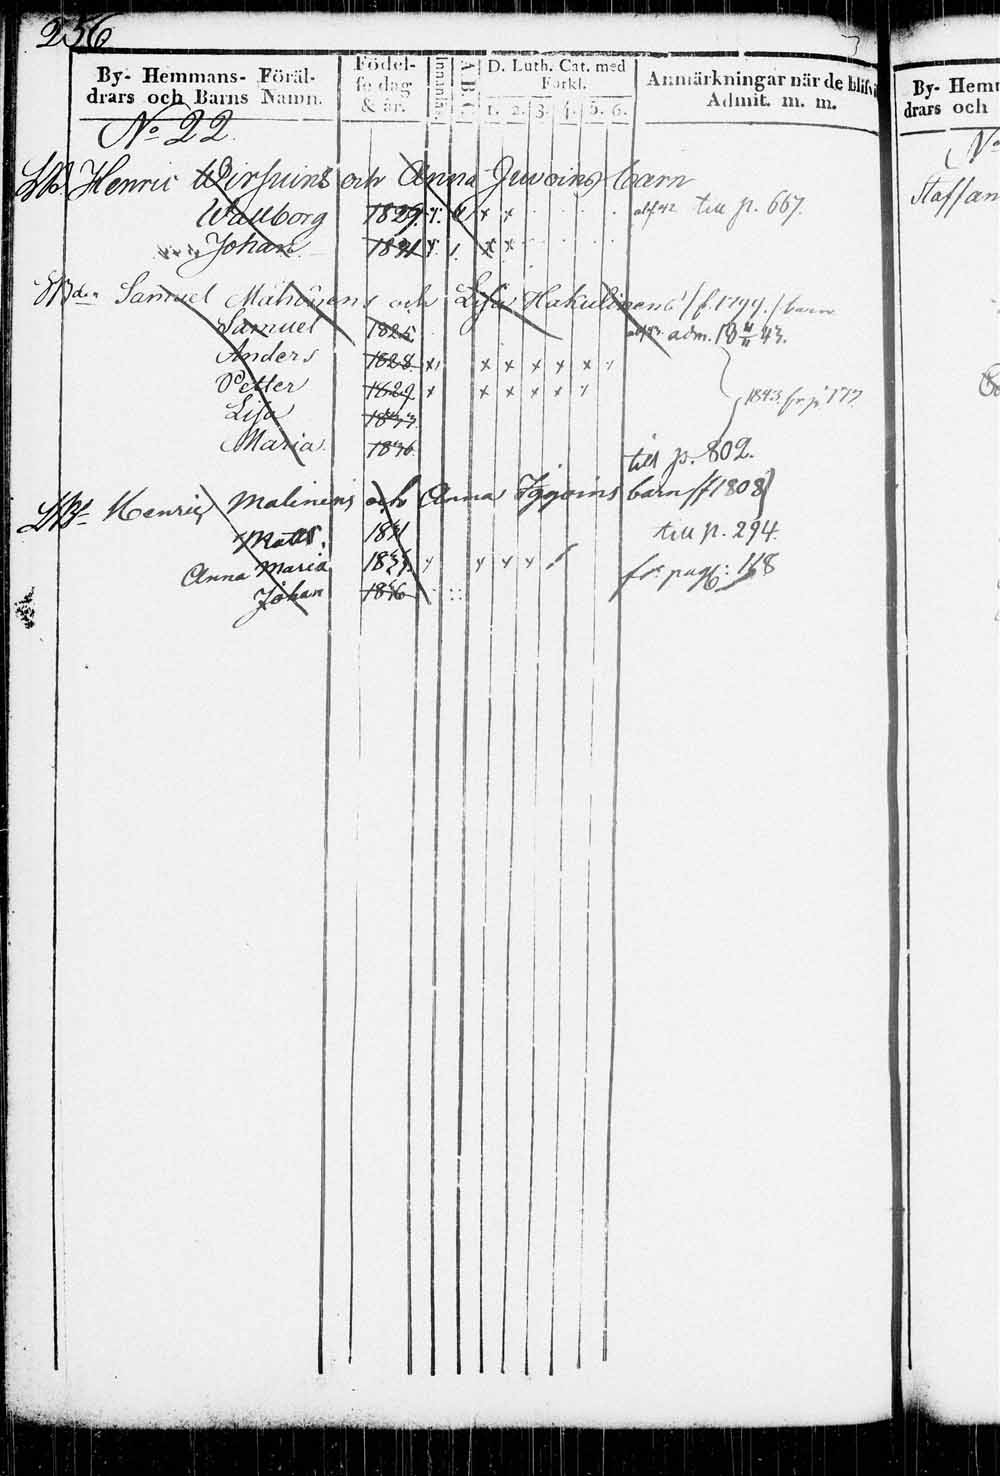 256
By- Hemmans- Föräl-
drars och Barns Namn.
Födel-
se dag
& år.
Innanläs
A B C
D. Luth. Cat. med
Förkl.
1. 2. 3. 4. 5. 6.
Anmärkningar när de blifvi
Admit. m. m.
No 22.
Henric Wirsuins och Anna Juvoins barn
Wallborg 1829 x x x till p. 667.
Johan 1831 x x x
Samuel Mahoinens och Lisa Hakulinens /f. 1799./ barn
Samuel 1825 adm. 18 4/11 43.
Anders 1828 x x x x x x
Petter 1829 x x x x x 1843 fr p 777
Lisa 1833
Maria 1836 till p. 802.
Henric Malinens och Anna Iggoins barn (f 1808)
Matts. 1831 till p. 294.
Anna Maria x x x x fr pag: 168
Johan 1836
By- Hemm
drars och
No
Staffan